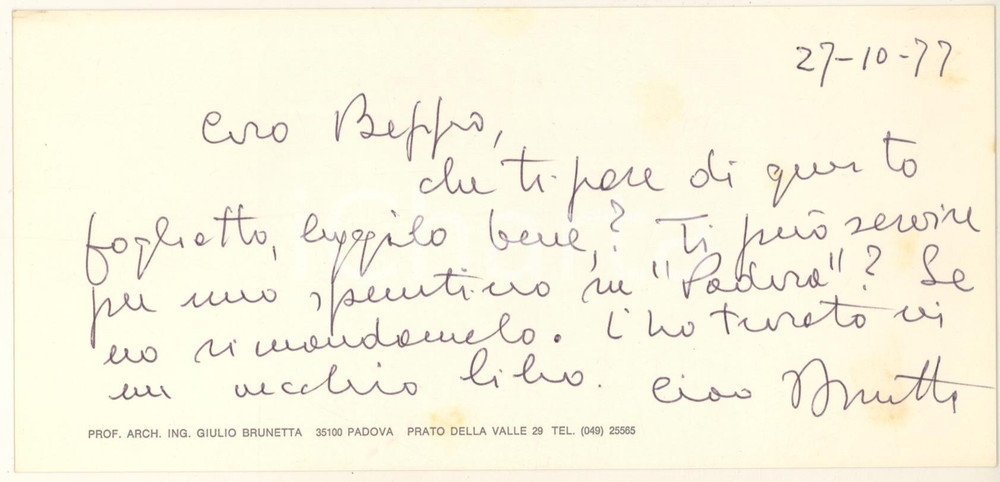 27-10-77
Caro Beppo,
che ti pare di questo
foglietto, leggilo bene,? Ti può servire
per uno spuntino su "Padova"? Se
no rimandamelo. L'ho trovato in
un vecchio libro. Ciao Brunetta
PROF. ARCH. ING. GIULIO BRUNETTA 35100 PADOVA PRATO DELLA VALLE 29 TEL. (049) 25565